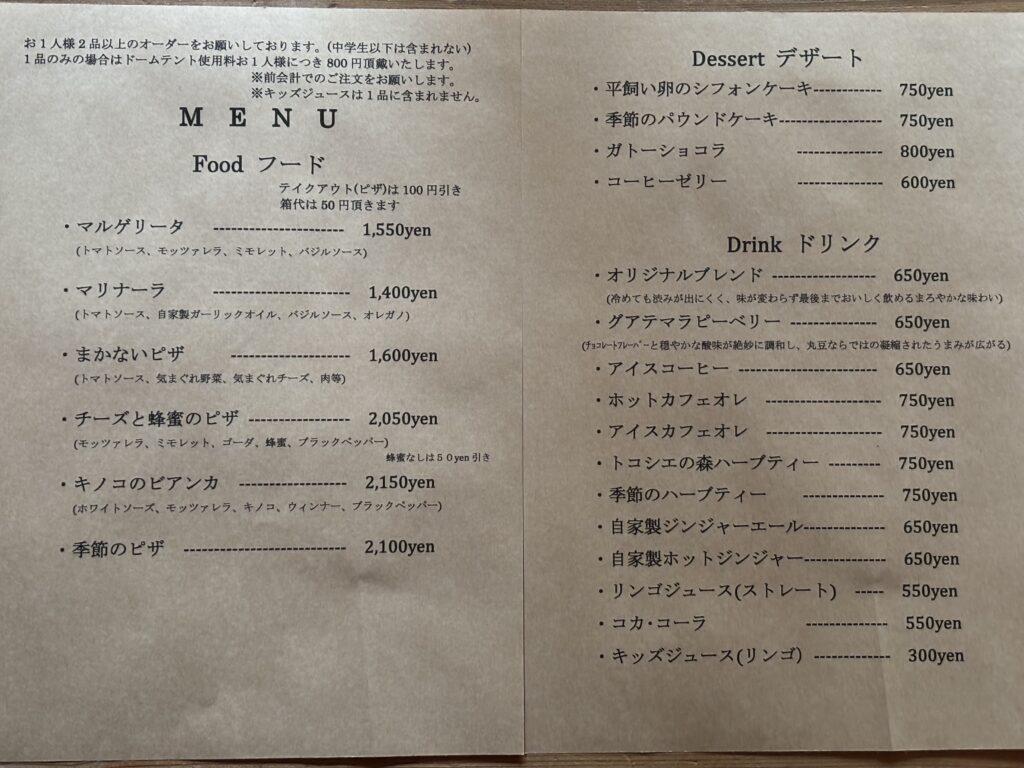 お1人様2品以上のオーダーをお願いしております。(中学生以下は含まれない)
1品のみの場合はドームテント使用料お1人様につき800円頂戴いたします。
※前会計でのご注文をお願いします。
※キッズジュースは1品に含まれません。
MENU
Food フード
テイクアウト(ピザ)は100円引き
箱代は50円頂きます
・マルゲリータ ---------------------- 1,550yen
(トマトソース、モッツァレラ、ミモレット、バジルソース)
・マリナーラ ----------------------- 1,400yen
(トマトソース、自家製ガーリックオイル、バジルソース、オレガノ)
・まかないピザ -------------------- 1,600yen
(トマトソース、気まぐれ野菜、気まぐれチーズ、肉等)
・チーズと蜂蜜のピザ ----------------- 2,050yen
(モッツァレラ、ミモレット、ゴーダ、蜂蜜、ブラックペッパー)
蜂蜜なしは５０yen引き
・キノコのビアンカ ------------------ 2,150yen
(ホワイトソーズ、モッツァレラ、キノコ、ウィンナー、ブラックペッパー)
・季節のピザ --------------------------- 2,100yen
Dessert デザート
・平飼い卵のシフォンケーキ------------ 750yen
・季節のパウンドケーキ------------------ 750yen
・ガトーショコラ --------------- 800yen
・コーヒーゼリー --------------- 600yen
Drink ドリンク
・オリジナルブレンド ------------------ 650yen
(冷めても渋みが出にくく、味が変わらず最後までおいしく飲めるまろやかな味わい)
・グアテマラピーベリー --------------- 650yen
(ﾁｮｺﾚｰﾄﾌﾚｰﾊﾞｰと穏やかな酸味が絶妙に調和し、丸豆ならではの凝縮されたうまみが広がる)
・アイスコーヒー ------------------------ 650yen
・ホットカフェオレ -------------------- 750yen
・アイスカフェオレ -------------------- 750yen
・トコシエの森ハーブティー --------- 750yen
・季節のハーブティー --------------- 750yen
・自家製ジンジャーエール--------------- 650yen
・自家製ホットジンジャー--------------- 650yen
・リンゴジュース(ストレート) ----- 550yen
・コカ・コーラ --------------- 550yen
・キッズジュース(リンゴ) -------------- 300yen